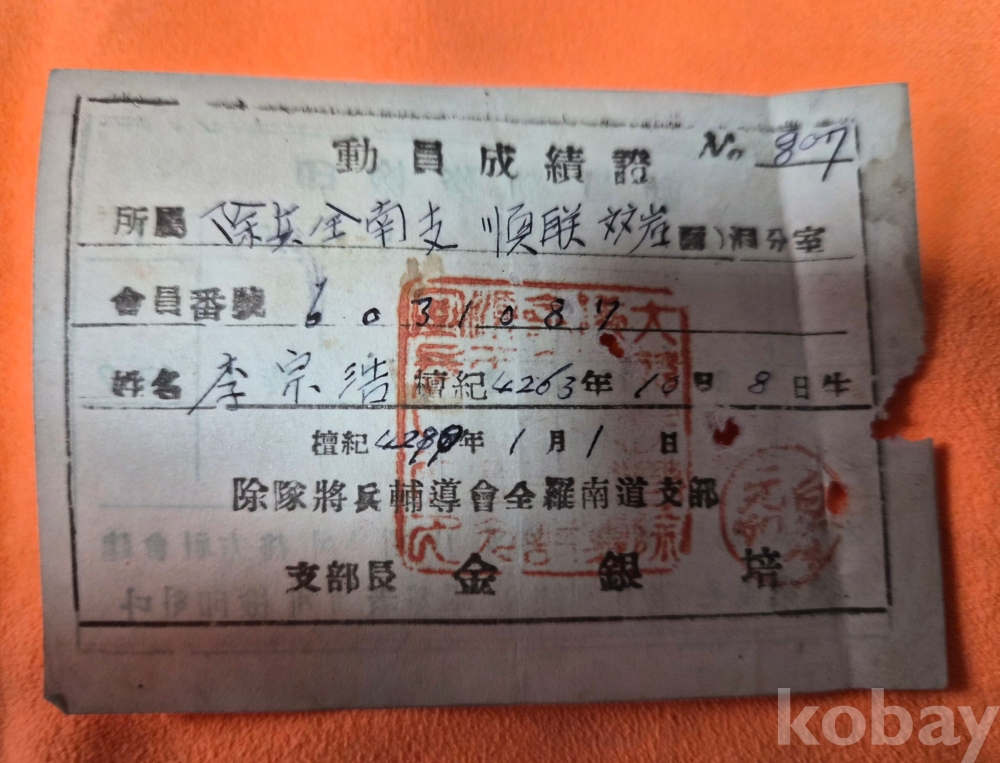 動員成績證 No 807
所屬 除兵全南支 順联 双岩 洞分室
會員番號 6031087
姓名 李宗浩 檀紀4263年10月8日生
檀紀年1月1日
除隊將兵輔導會全羅南道支部
支部長 金銀培
kobay